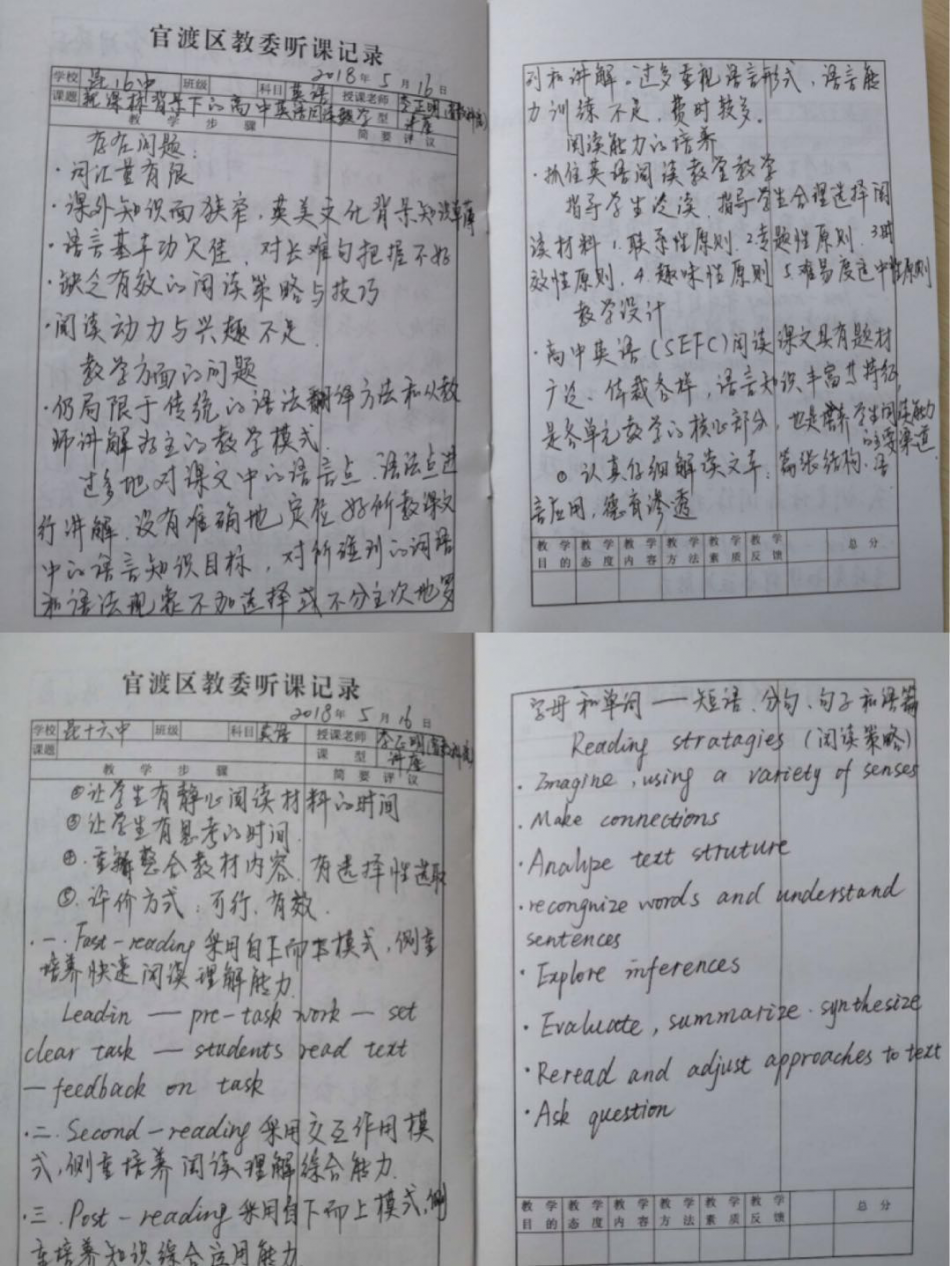 官渡区教委听课记录
2018年 5月 16日
学校 昆16中 班级 科目 英语 授课老师 李正明
课题 新课标背景下的高中英语阅读教学 课型 讲座
教学步骤 简要评议
存在问题：
·词汇量有限
·课外知识面狭窄，英美文化背景知识单薄
·语言基本功欠佳，对长难句把握不好
·缺乏有效的阅读策略与技巧
·阅读动力与兴趣不足.
教学方面的问题
·仍局限于传统的语法翻译方法和以教
师讲解为主的教学模式.
过多地对课文中的语言点.语法点进
行讲解.没有准确地定位好所教课文
中的语言知识目标，对所碰到的词语
和语法现象不加选择或不分主次地罗
列和讲解。过多重视语言形式，语言能
力训练不足，费时较多。
阅读能力的培养
·抓住英语阅读教堂教学
指导学生泛读，指导学生合理选择阅
读材料 1.联系性原则.2.专题性原则.3.时
效性原则.4.趣味性原则 5.难易度适中性原则
教学设计
·高中英语(SEFC)阅读课文具有题材
广泛、体裁各样，语言知识丰富等特征,
是各单元教学的核心部分，也是培养学生阅读能力
的主要渠道.
①认真仔细解读文本：篇张结构.语
言应用，德育渗透
教学目的 教学态度 教学内容 教学方法 教学素质 教学反馈 总分
官渡区教委听课记录
2018年 5月 16日
学校 昆十六中 班级 科目 英语 授课老师 李正明
课题 课型 讲座
教学步骤 简要评议
②让学生有静心阅读材料的时间
③让学生有思考的时间.
④.重新整合教材内容.有选择性选取
⑤.评价方式：可行.有效.
·一.Fast-reading采用自下而上模式，侧重
培养快速阅读理解能力.
Leadin — pre-task work — set
clear task — students read text
— feedback on task
·二.Second-reading采用交互作用模
式,侧重培养阅读理解综合能力.
·三.Post-reading采用自下而上模式,侧
重培养知识综合运用能力
字母和单词——短语.分句.句子和语篇
Reading stratagies (阅读策略)
·Imagine, using a variety of senses
·Make connections
·Analyze text struture
·recongnize words and understand
sentences
·Explore inferences
·Evaluate, summarize. synthesize
·Reread and adjust approaches to text
·Ask question
教学目的 教学态度 教学内容 教学方法 教学素质 教学反馈 总分